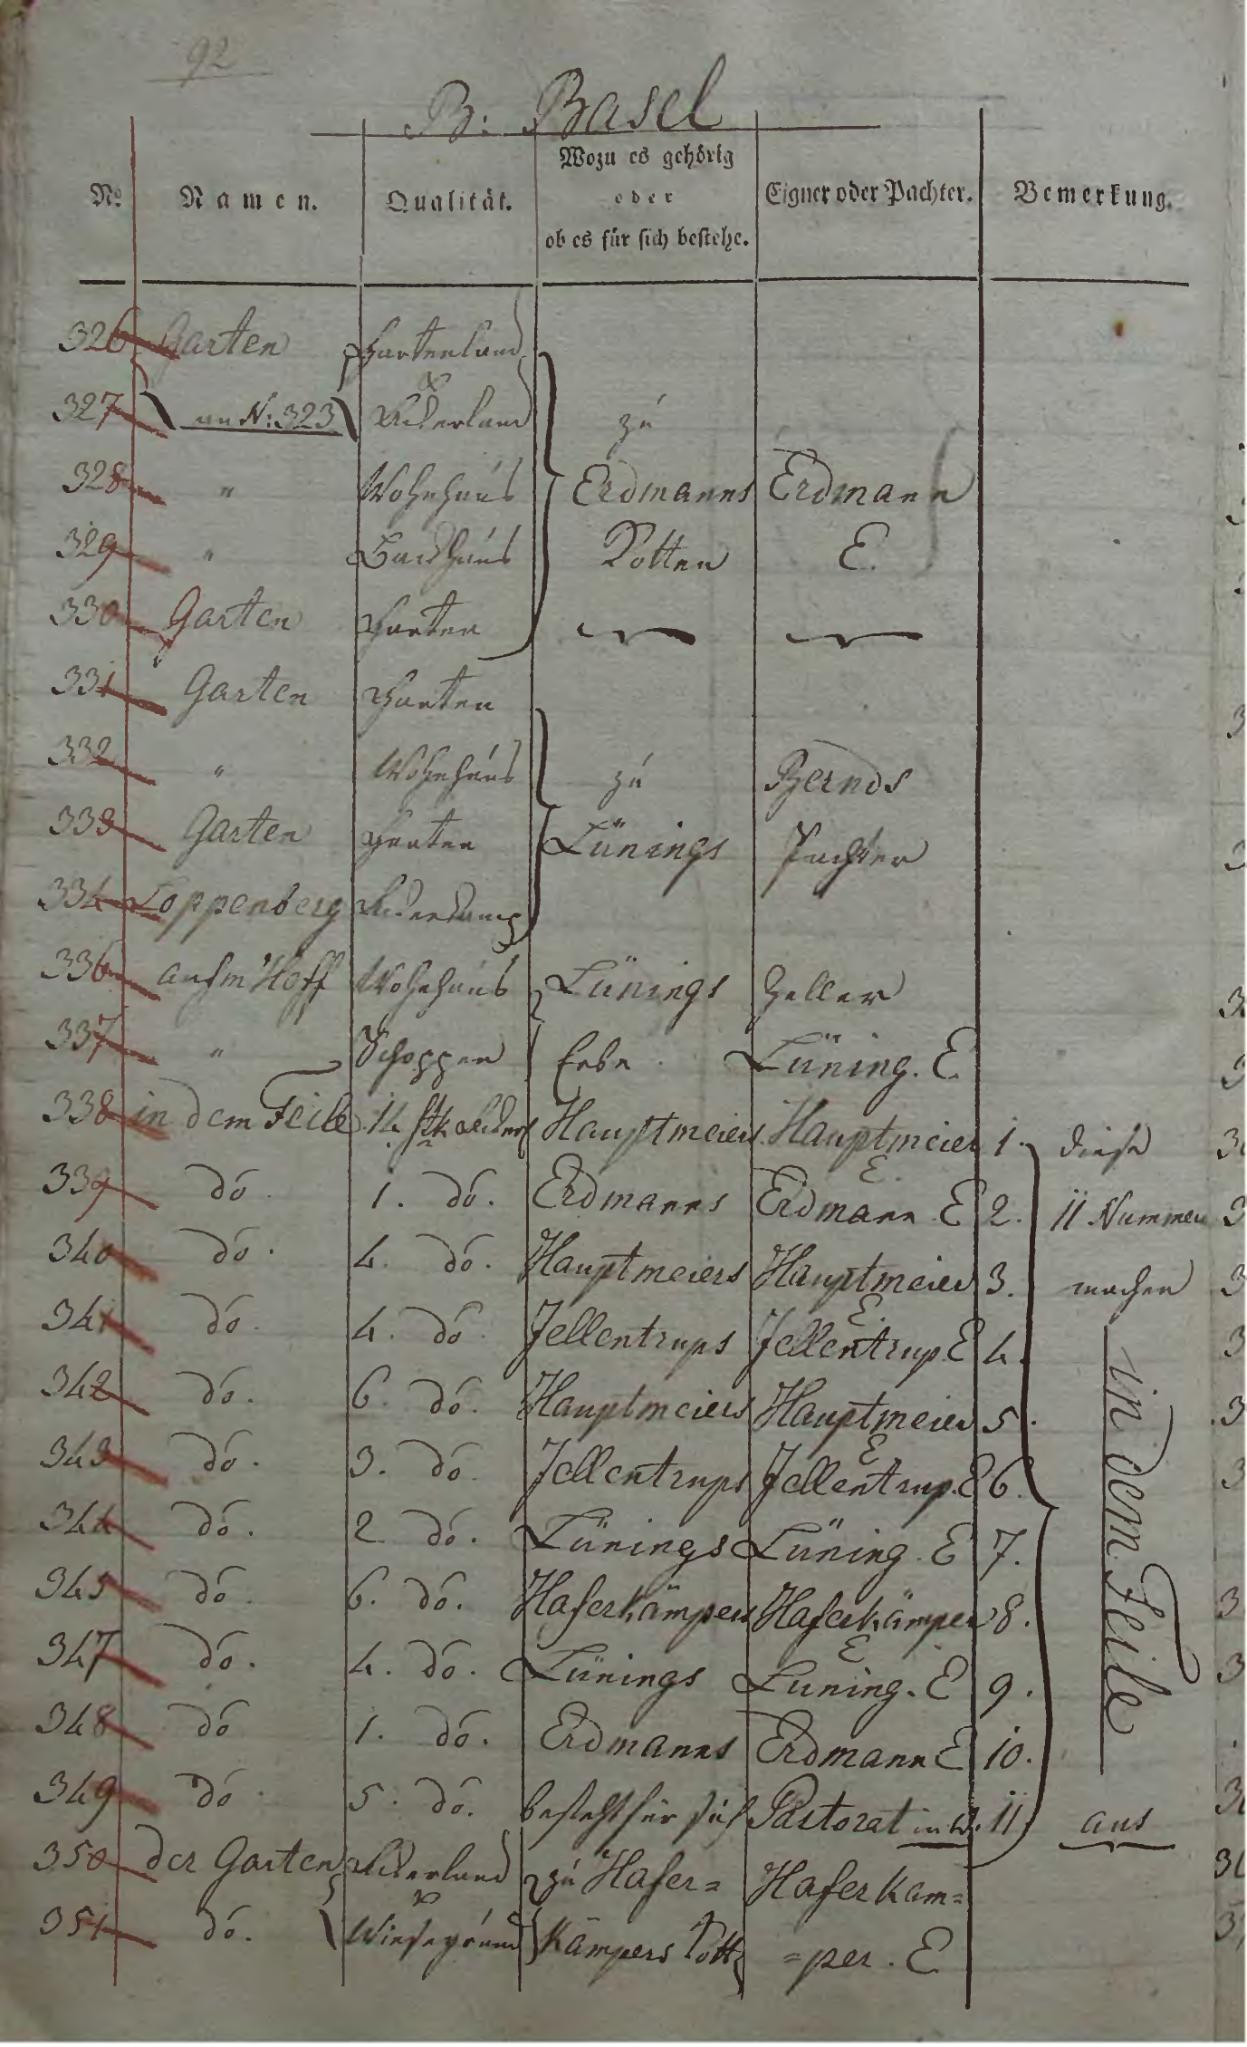 92
B: Basel
No. Namen. Qualität. Wozu es gehörig oder ob es für sich bestehe. Eigner oder Pachter. Bemerkung.
326 Garten Gartenland
&
327 an N: 323 Ackerland zu
328 " Wohnhaus Erdmanns Erdmann
329 " Backhaus Kotten E.
330 Garten Garten
331 Garten Garten
332 " Wohnhaus zu Bernds
333 Garten Garten Lünings Pachter
334 Loppenberg Ackerkamp
336 aufm Hoff Wohnhaus Lünings Zeller
337 " Schoppen Erbe Lüning. E
338 in dem Feile 14 Stk Ackers Hauptmeiers Hauptmeier E 1. diese
339 do 1. do. Erdmanns Erdmann E 2. 11 Nummern
340 do. 4. do. Hauptmeiers Hauptmeier E 3. machen
341 do. 4. do. Jellentrups Jellentrup. E 4.
342 do. 6. do. Hauptmeiers Hauptmeier E 5.
343 do. 3. do. Jellentrups Jellentrup. E 6.
344 do. 2 do. Lünings Lüning. E 7.
345 do. 6. do. Haferkämpers Haferkämper E 8.
347 do. 4. do. Lünings Luning. E 9.
348 do 1. do. Erdmanns Erdmann E 10.
349 do 5. do. besteht für sich Pastorat in W. 11. aus
in dem Feile
350 der Garten Ackerland zu Hafer= Haferkam=
&
351 do. Wiesegrund kämpers Kott =per. E